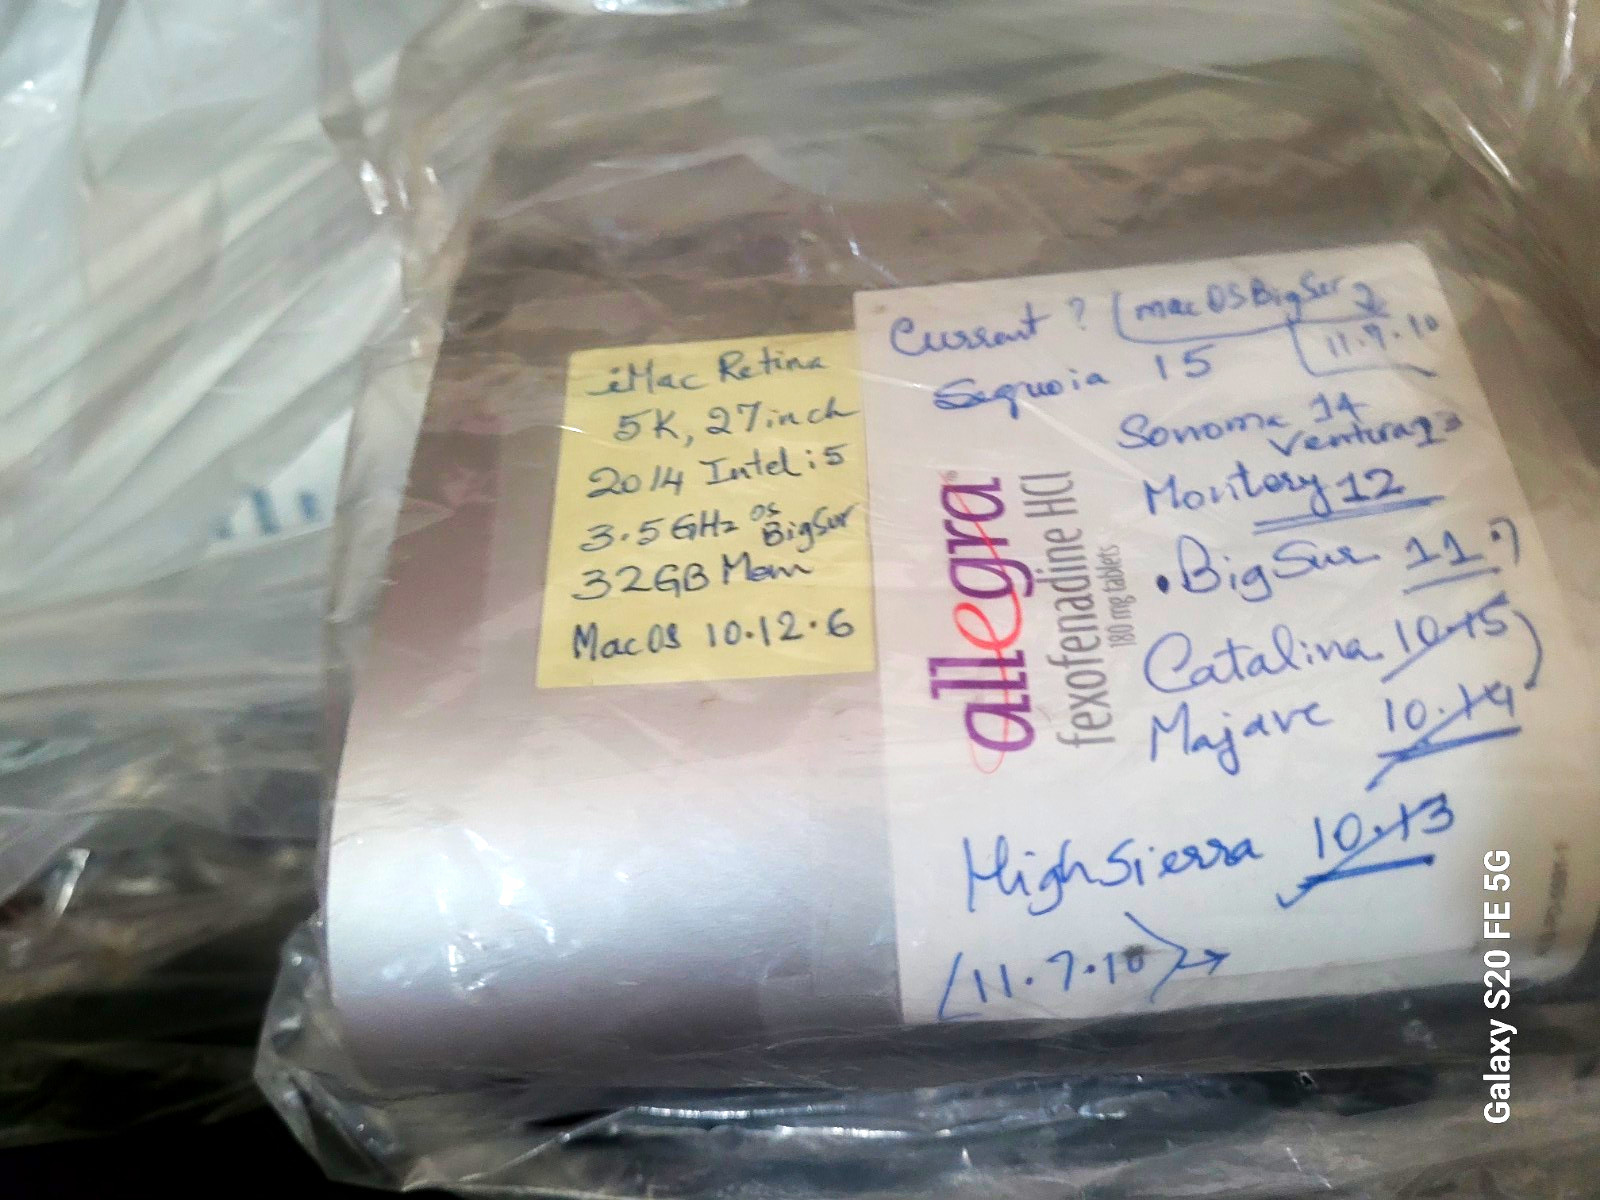 iMac Retina
5K, 27inch
2014 Intel i5
3.5GHz OS BigSur
32GB Mem
MacOS 10.12.6
Current ? macOS BigSur
11.7.10
Sequoia 15
Sonoma 14
Ventura 13
Montery 12
• BigSur 11.7
Catalina 10.15
Majave 10.14
HighSierra 10.13
(11.7.10) →
allegra
fexofenadine HCl
180 mg tablets
Galaxy S20 FE 5G